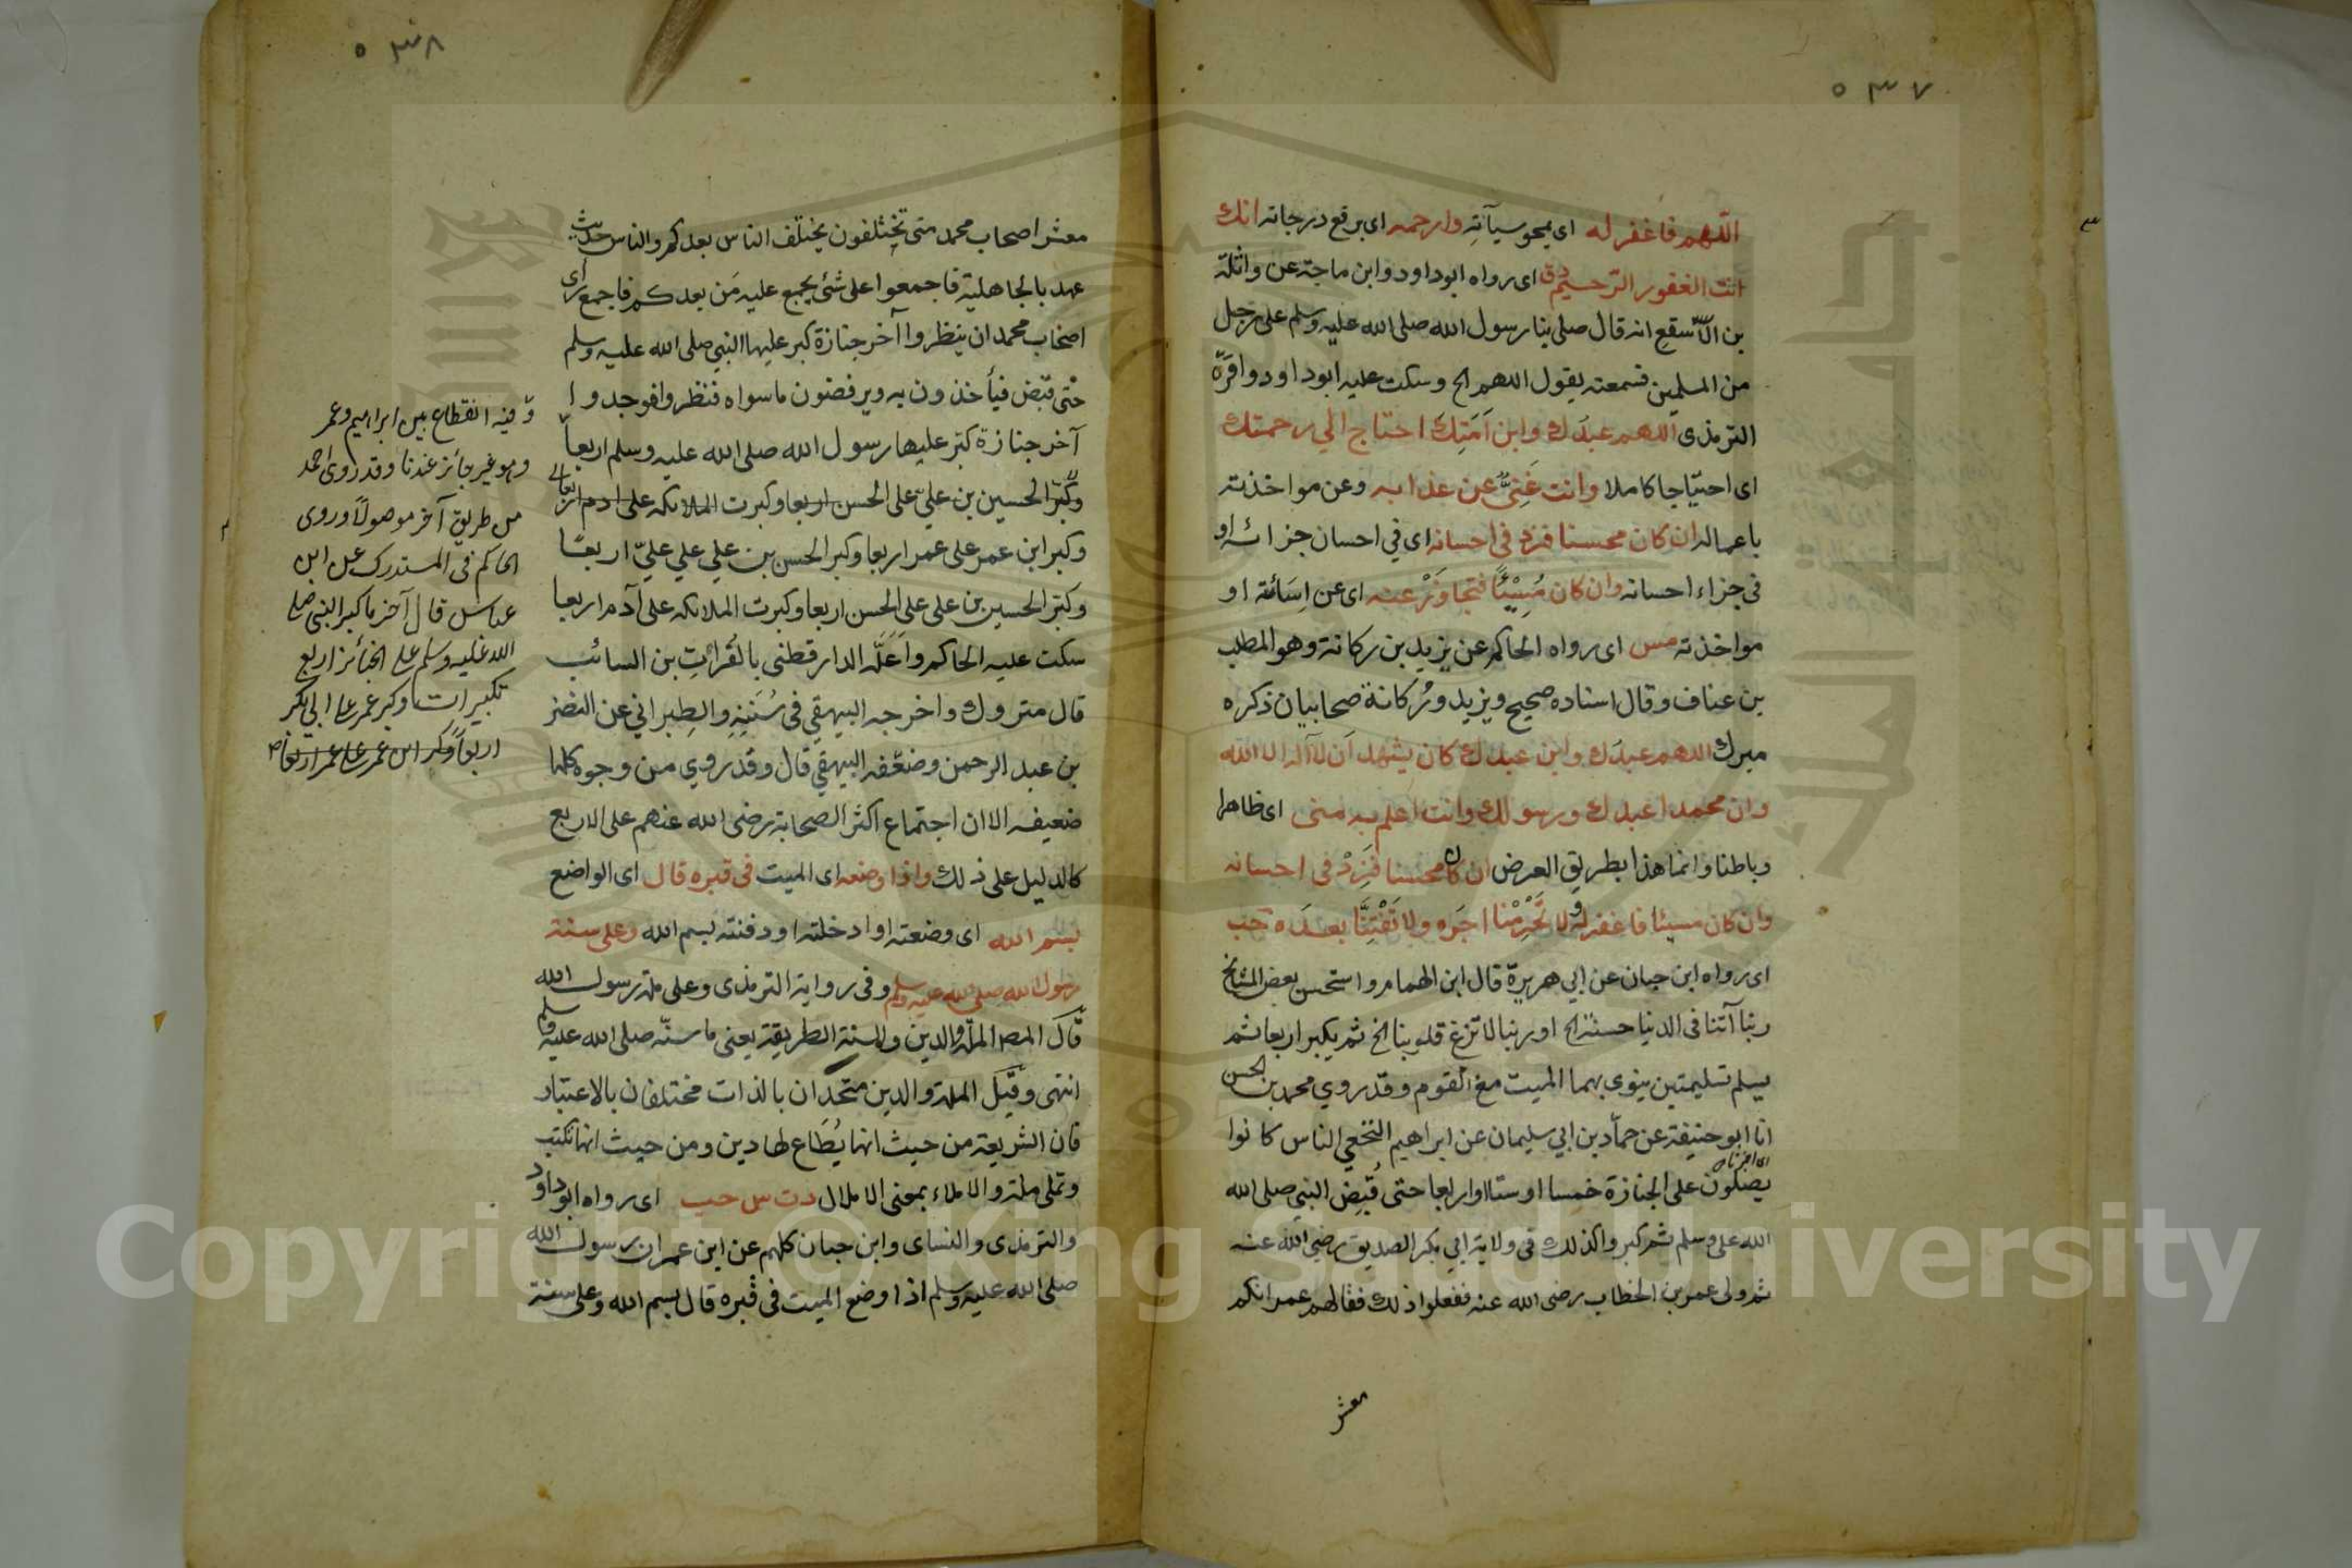 ٥٣٧
اللهم فاغفر له اى يمحو سيآته وارحمه اى برفع درجاته انك
انت الغفور الرحيم دق اى رواه ابوداود وابن ماجة عن واثلة
بن الاسقع انه قال صلى بنا رسول الله صلى الله عليه وسلم على رجل
من المسلمين فسمعته يقول اللهم الخ وسكت عليه ابوداود واقره
الترمذى اللهم عبدك وابن امتك احتاج الي رحمتك
اى احتياجا كاملا وانت غني عن عذابه وعن مواخذته
باعماله ان كان محسنا فزد فى احسانه اى في احسان جزائه او
فى جزاء احسانه وان كان مسيئا فتجاوز عنه اى عن اسائته او
مواخذته مس اى رواه الحاكم عن يزيد بن ركانة وهو المطلب
بن عناف وقال اسناده صحيح ويزيد وركانة صحابيان ذكره
ميرك اللهم عبدك وابن عبدك كان يشهد ان لا آله الا الله
وان محمدا عبدك ورسولك وانت اعلم به منى اى ظاهرا
وباطنا وانما هذا بطريق العرض ان كان محسنا فزد فى احسانه
وان كان مسيئا فاغفر له ولا تحرمنا اجره ولا تفتنا بعده حب
اى رواه ابن حبان عن ابي هريرة قال ابن الهمام واستحسن بعض المشايخ
ربنا آتنا فى الدنيا حسنة الخ او ربنا لا تزغ قلوبنا الخ ثم يكبر اربعا ثم
يسلم تسليمتين ينوى بهما الميت مع القوم وقد روي محمد بن الحسن
انا ابو حنيفة عن حماد بن ابي سليمان عن ابراهيم النخعي الناس كانوا
اى اخبرنا
يصلون على الجنازة خمسا او ستا او اربعا حتى قبض النبي صلى الله
الله على وسلم ثم كبروا كذلك فى ولاية ابي بكر الصديق رضي الله عنه
ثم ولى عمر بن الخطاب رضى الله عنه ففعلوا ذلك فقال لهم عمر انكم
معشر
٥٣٨
معشر اصحاب محمد متى تختلفون يختلف الناس بعدكم والناس حديث
عهد بالجاهلية فاجمعوا على شئ يجمع عليه من بعدكم فاجمع راى
اصحاب محمد ان ينظروا آخر جنازة كبر عليها النبي صلى الله عليه وسلم
حتى قبض فيأخذون به ويرفضون ما سواه فنظروا فوجدوا
آخر جنازة كبر عليها رسول الله صلى الله عليه وسلم اربعا
وكبر الحسين بن علي على الحسن اربعا وكبرت الملائكه على ادم اربعا
وكبر ابن عمر على عمر اربعا وكبر الحسن بن علي علي علي اربعا
وكبر الحسين بن على على الحسن اربعا وكبرت الملائكه على آدم اربعا
سكت عليه الحاكم واعله الدار قطنى بالفرات بن السائب
قال متروك واخرجه البيهقي فى سننه والطبراني عن النضر
بن عبد الرحمن وضعفه البيهقي قال وقد روي من وجوه كلها
ضعيفه الا ان اجتماع اكثر الصحابة رضى الله عنهم على الاربع
كالدليل على ذلك واذا وضعه اى الميت فى قبره قال اى الواضع
بسم الله اى وضعته او ادخلته او دفنته بسم الله وعلى سنة
رسول الله صلى الله عليه وسلم وفى رواية الترمذى وعلى ملة رسول الله
قال المصـ الملة والدين والسنة الطريقة يعنى ما سنه صلى الله عليه وسلم
انتهى وقيل الملة والدين متحدان بالذات مختلفان بالاعتبار
فان الشريعة من حيث انها يطاع لها دين ومن حيث انها تكتب
وتملى ملة والاملاء بمعنى الاملال دت س حب اى رواه ابو داود
والترمذى والنساى وابن حبان كلهم عن ابن عمر ان رسول الله
صلى الله عليه وسلم اذا وضع الميت فى قبره قال بسم الله وعلى سنة
وفيه انقطاع بين ابراهيم وعمر
وهو غير جائز عندنا وقد روى احمد
من طريق آخر موصولا وروى
الحاكم فى المستدرك عن ابن
عباس قال آخر ما كبر النبى صلى
الله عليه وسلم على الجنائز اربع
تكبيرات وكبر عمر على ابي بكر
اربعا وكبر ابن عمر على عمر اربعا
Copyright © King Saud University